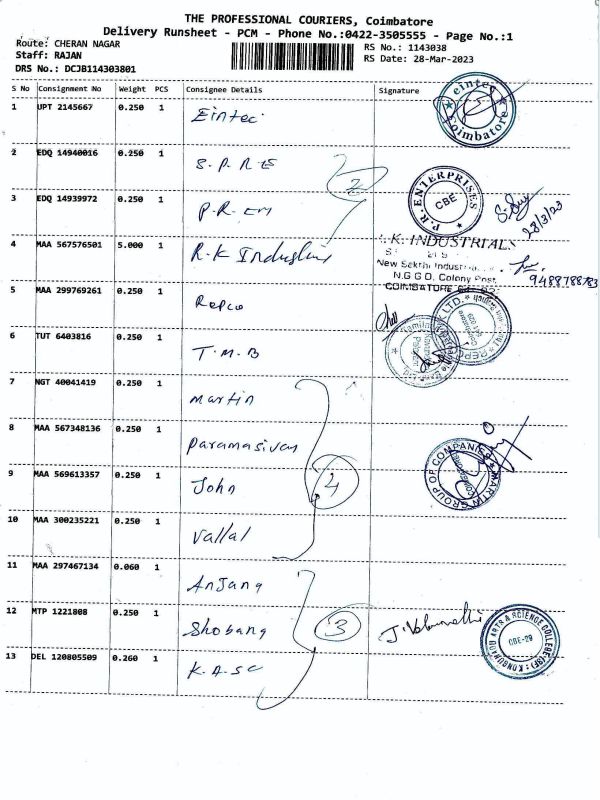 THE PROFESSIONAL COURIERS, Coimbatore
Delivery Runsheet - PCM - Phone No.:0422-3505555 - Page No.:1
Route: CHERAN NAGAR
RS No.: 1143038
Staff: RAJAN
RS Date: 28-Mar-2023
DRS No.: DCJB114303801
S No Consignment No Weight PCS Consignee Details Signature
1 UPT 2145667 0.250 1 Eintec
eintec Coimbatore
2 EDQ 14940016 0.250 1 S.P.R.E
2
P.R. ENTERPRISES CBE
3 EDQ 14939972 0.250 1 P.R. Em
28/3/23
4 MAA 567576501 5.000 1 R.K Industries
.K. INDUSTRIALS
New Sakthi Indust
N.G.G.O. Colony Post
COIMBATORE
9488788783
5 MAA 299769261 0.250 1 Repco
6 TUT 6403816 0.250 1 T.M.B
7 NGT 40041419 0.250 1 Martin
8 MAA 567348136 0.250 1 Paramasivan
MARTIN GROUP OF COMPANIES
9 MAA 569613357 0.250 1 John
4
10 MAA 300235221 0.250 1 Vallal
11 MAA 297467134 0.060 1 Anjana
12 MTP 1221808 0.250 1 Shobana
3
KONGUNADU ARTS & SCIENCE COLLEGE (SF) CBE-29
13 DEL 120805509 0.260 1 K.A.SC